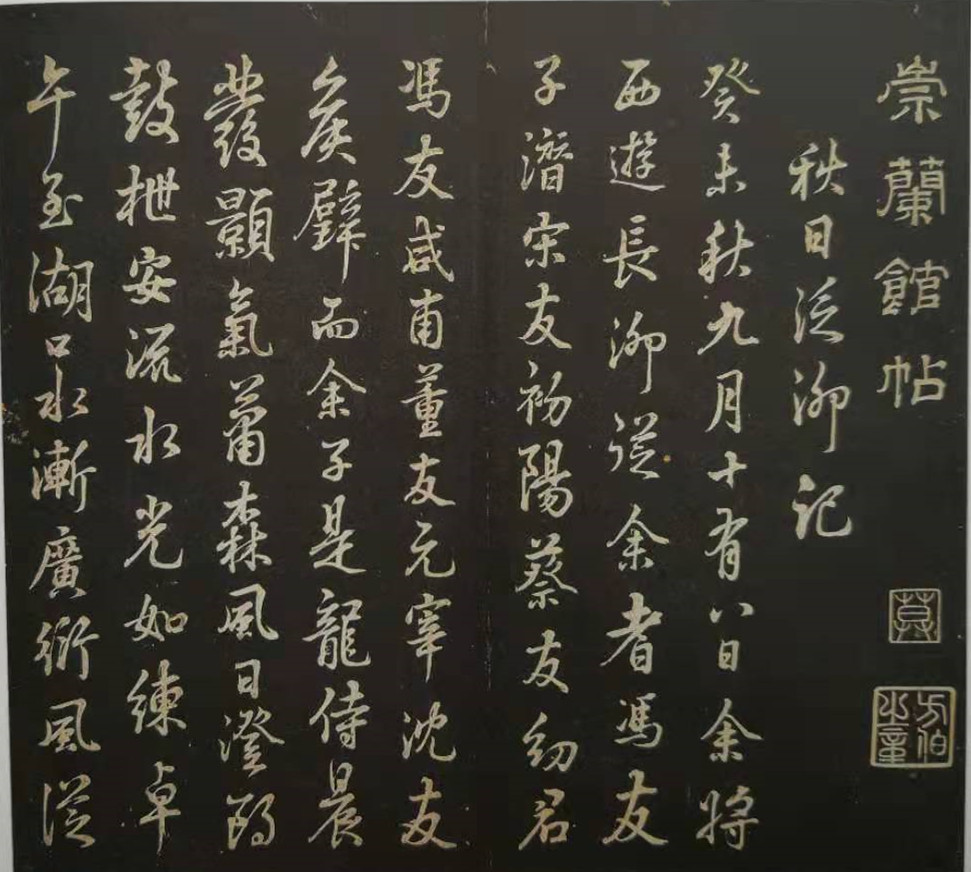 崇蘭館帖
秋日泛泖記
癸未秋九月十有八日余將
西遊長泖從余者馮友
子潛宋友初陽蔡友幼君
馮友咸甫董友元宰沈友
矦璧而余子是龍侍晨
發顥氣蕭森風日澄朗
鼓枻安流水光如練卓
午至湖口水漸廣衍風從